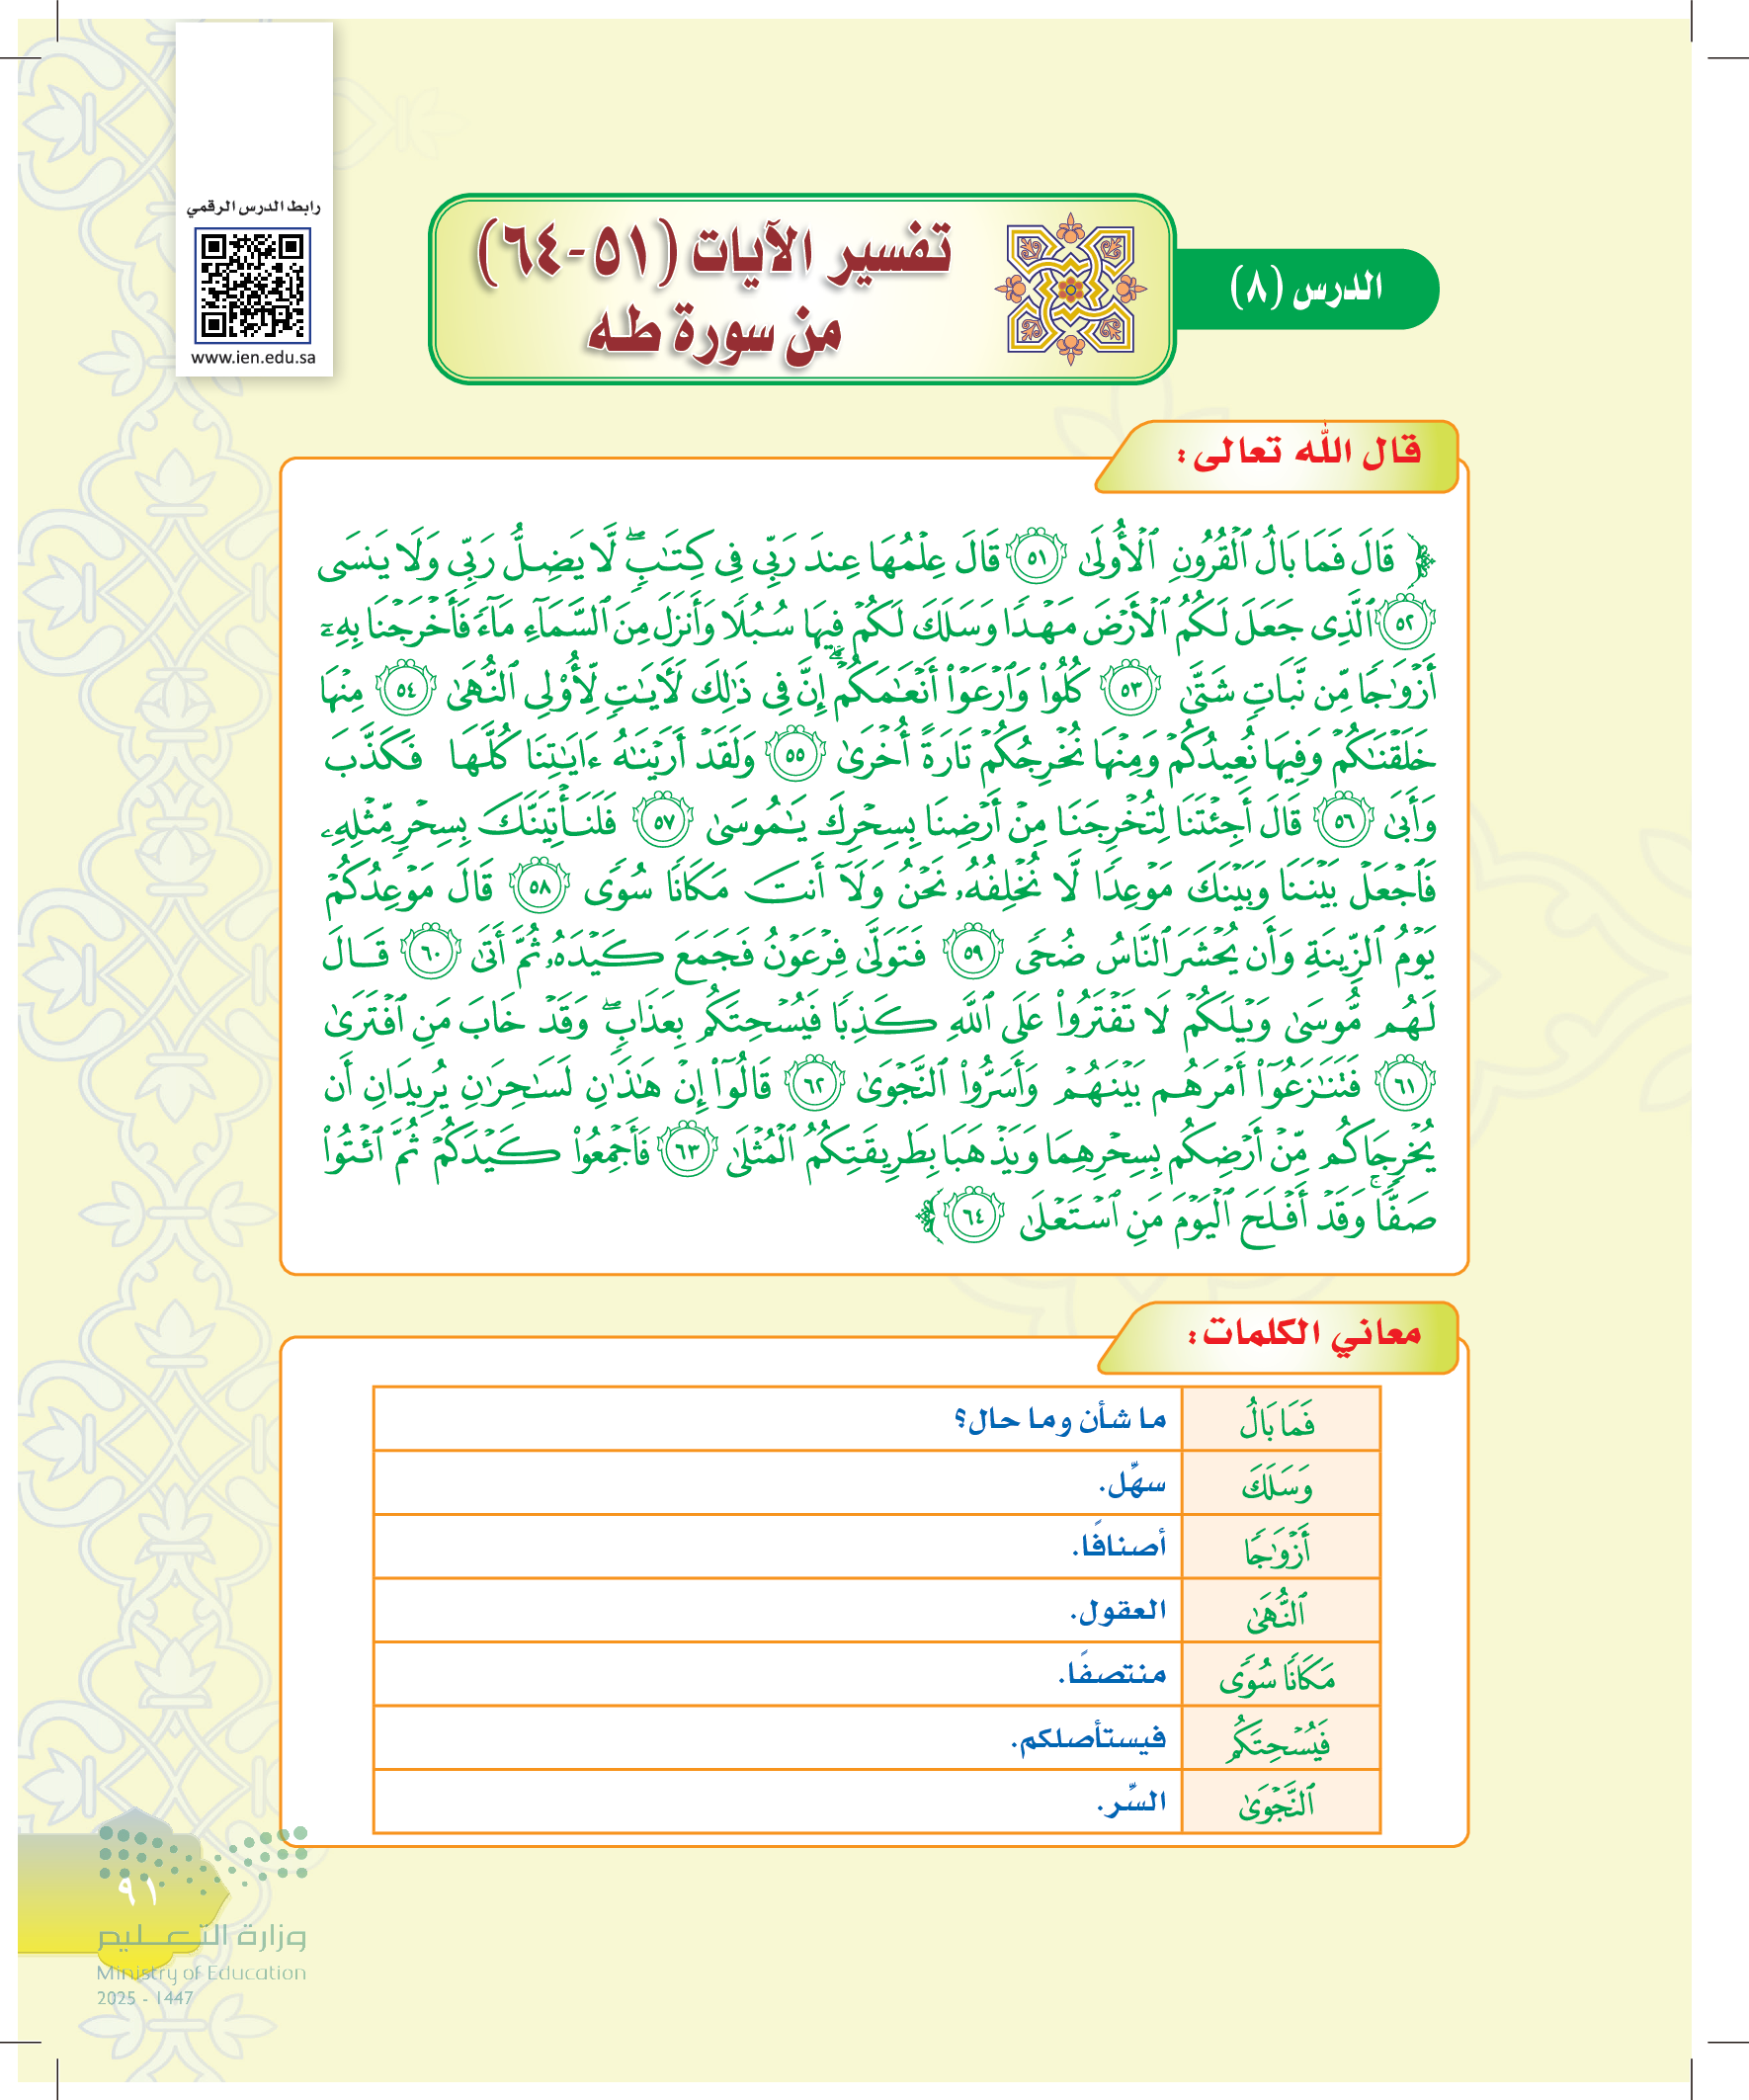 رابط الدرس الرقمي
www.ien.edu.sa
الدرس (٨)
تفسير الآيات (٥١-٦٤)
من سورة طه
قال الله تعالى:
﴿ قَالَ فَمَا بَالُ ٱلْقُرُونِ ٱلْأُولَىٰ ٥١ قَالَ عِلْمُهَا عِندَ رَبِّى فِى كِتَـٰبٍۖ لَّا يَضِلُّ رَبِّى وَلَا يَنسَى
٥٢ ٱلَّذِى جَعَلَ لَكُمُ ٱلْأَرْضَ مَهْدًا وَسَلَكَ لَكُمْ فِيهَا سُبُلًا وَأَنزَلَ مِنَ ٱلسَّمَآءِ مَآءً فَأَخْرَجْنَا بِهِۦٓ
أَزْوَٰجًا مِّن نَّبَاتٍ شَتَّىٰ ٥٣ كُلُوا۟ وَٱرْعَوْا۟ أَنْعَـٰمَكُمْۗ إِنَّ فِى ذَٰلِكَ لَـَٔايَـٰتٍ لِّأُو۟لِى ٱلنُّهَىٰ ٥٤ مِنْهَا
خَلَقْنَـٰكُمْ وَفِيهَا نُعِيدُكُمْ وَمِنْهَا نُخْرِجُكُمْ تَارَةً أُخْرَىٰ ٥٥ وَلَقَدْ أَرَيْنَـٰهُ ءَايَـٰتِنَا كُلَّهَا فَكَذَّبَ
وَأَبَىٰ ٥٦ قَالَ أَجِئْتَنَا لِتُخْرِجَنَا مِنْ أَرْضِنَا بِسِحْرِكَ يَـٰمُوسَىٰ ٥٧ فَلَنَأْتِيَنَّكَ بِسِحْرٍ مِّثْلِهِۦ
فَٱجْعَلْ بَيْنَنَا وَبَيْنَكَ مَوْعِدًا لَّا نُخْلِفُهُۥ نَحْنُ وَلَآ أَنتَ مَكَانًا سُوًى ٥٨ قَالَ مَوْعِدُكُمْ
يَوْمُ ٱلزِّينَةِ وَأَن يُحْشَرَ ٱلنَّاسُ ضُحًى ٥٩ فَتَوَلَّىٰ فِرْعَوْنُ فَجَمَعَ كَيْدَهُۥ ثُمَّ أَتَىٰ ٦٠ قَالَ
لَهُم مُّوسَىٰ وَيْلَكُمْ لَا تَفْتَرُوا۟ عَلَى ٱللَّهِ كَذِبًا فَيُسْحِتَكُم بِعَذَابٍۖ وَقَدْ خَابَ مَنِ ٱفْتَرَىٰ
٦١ فَتَنَـٰزَعُوٓا۟ أَمْرَهُم بَيْنَهُمْ وَأَسَرُّوا۟ ٱلنَّجْوَىٰ ٦٢ قَالُوٓا۟ إِنْ هَـٰذَٰنِ لَسَـٰحِرَٰنِ يُرِيدَانِ أَن
يُخْرِجَاكُم مِّنْ أَرْضِكُم بِسِحْرِهِمَا وَيَذْهَبَا بِطَرِيقَتِكُمُ ٱلْمُثْلَىٰ ٦٣ فَأَجْمِعُوا۟ كَيْدَكُمْ ثُمَّ ٱئْتُوا۟
صَفًّاۚ وَقَدْ أَفْلَحَ ٱلْيَوْمَ مَنِ ٱسْتَعْلَىٰ ٦٤ ﴾
معاني الكلمات:
فَمَا بَالُ ما شأن وما حال؟
وَسَلَكَ سهَّل.
أَزْوَٰجًا أصنافًا.
ٱلنُّهَىٰ العقول.
مَكَانًا سُوًى منتصفًا.
فَيُسْحِتَكُم فيستأصلكم.
ٱلنَّجْوَىٰ السِّر.
٩١
وزارة التعليم
Ministry of Education
2025 - 1447